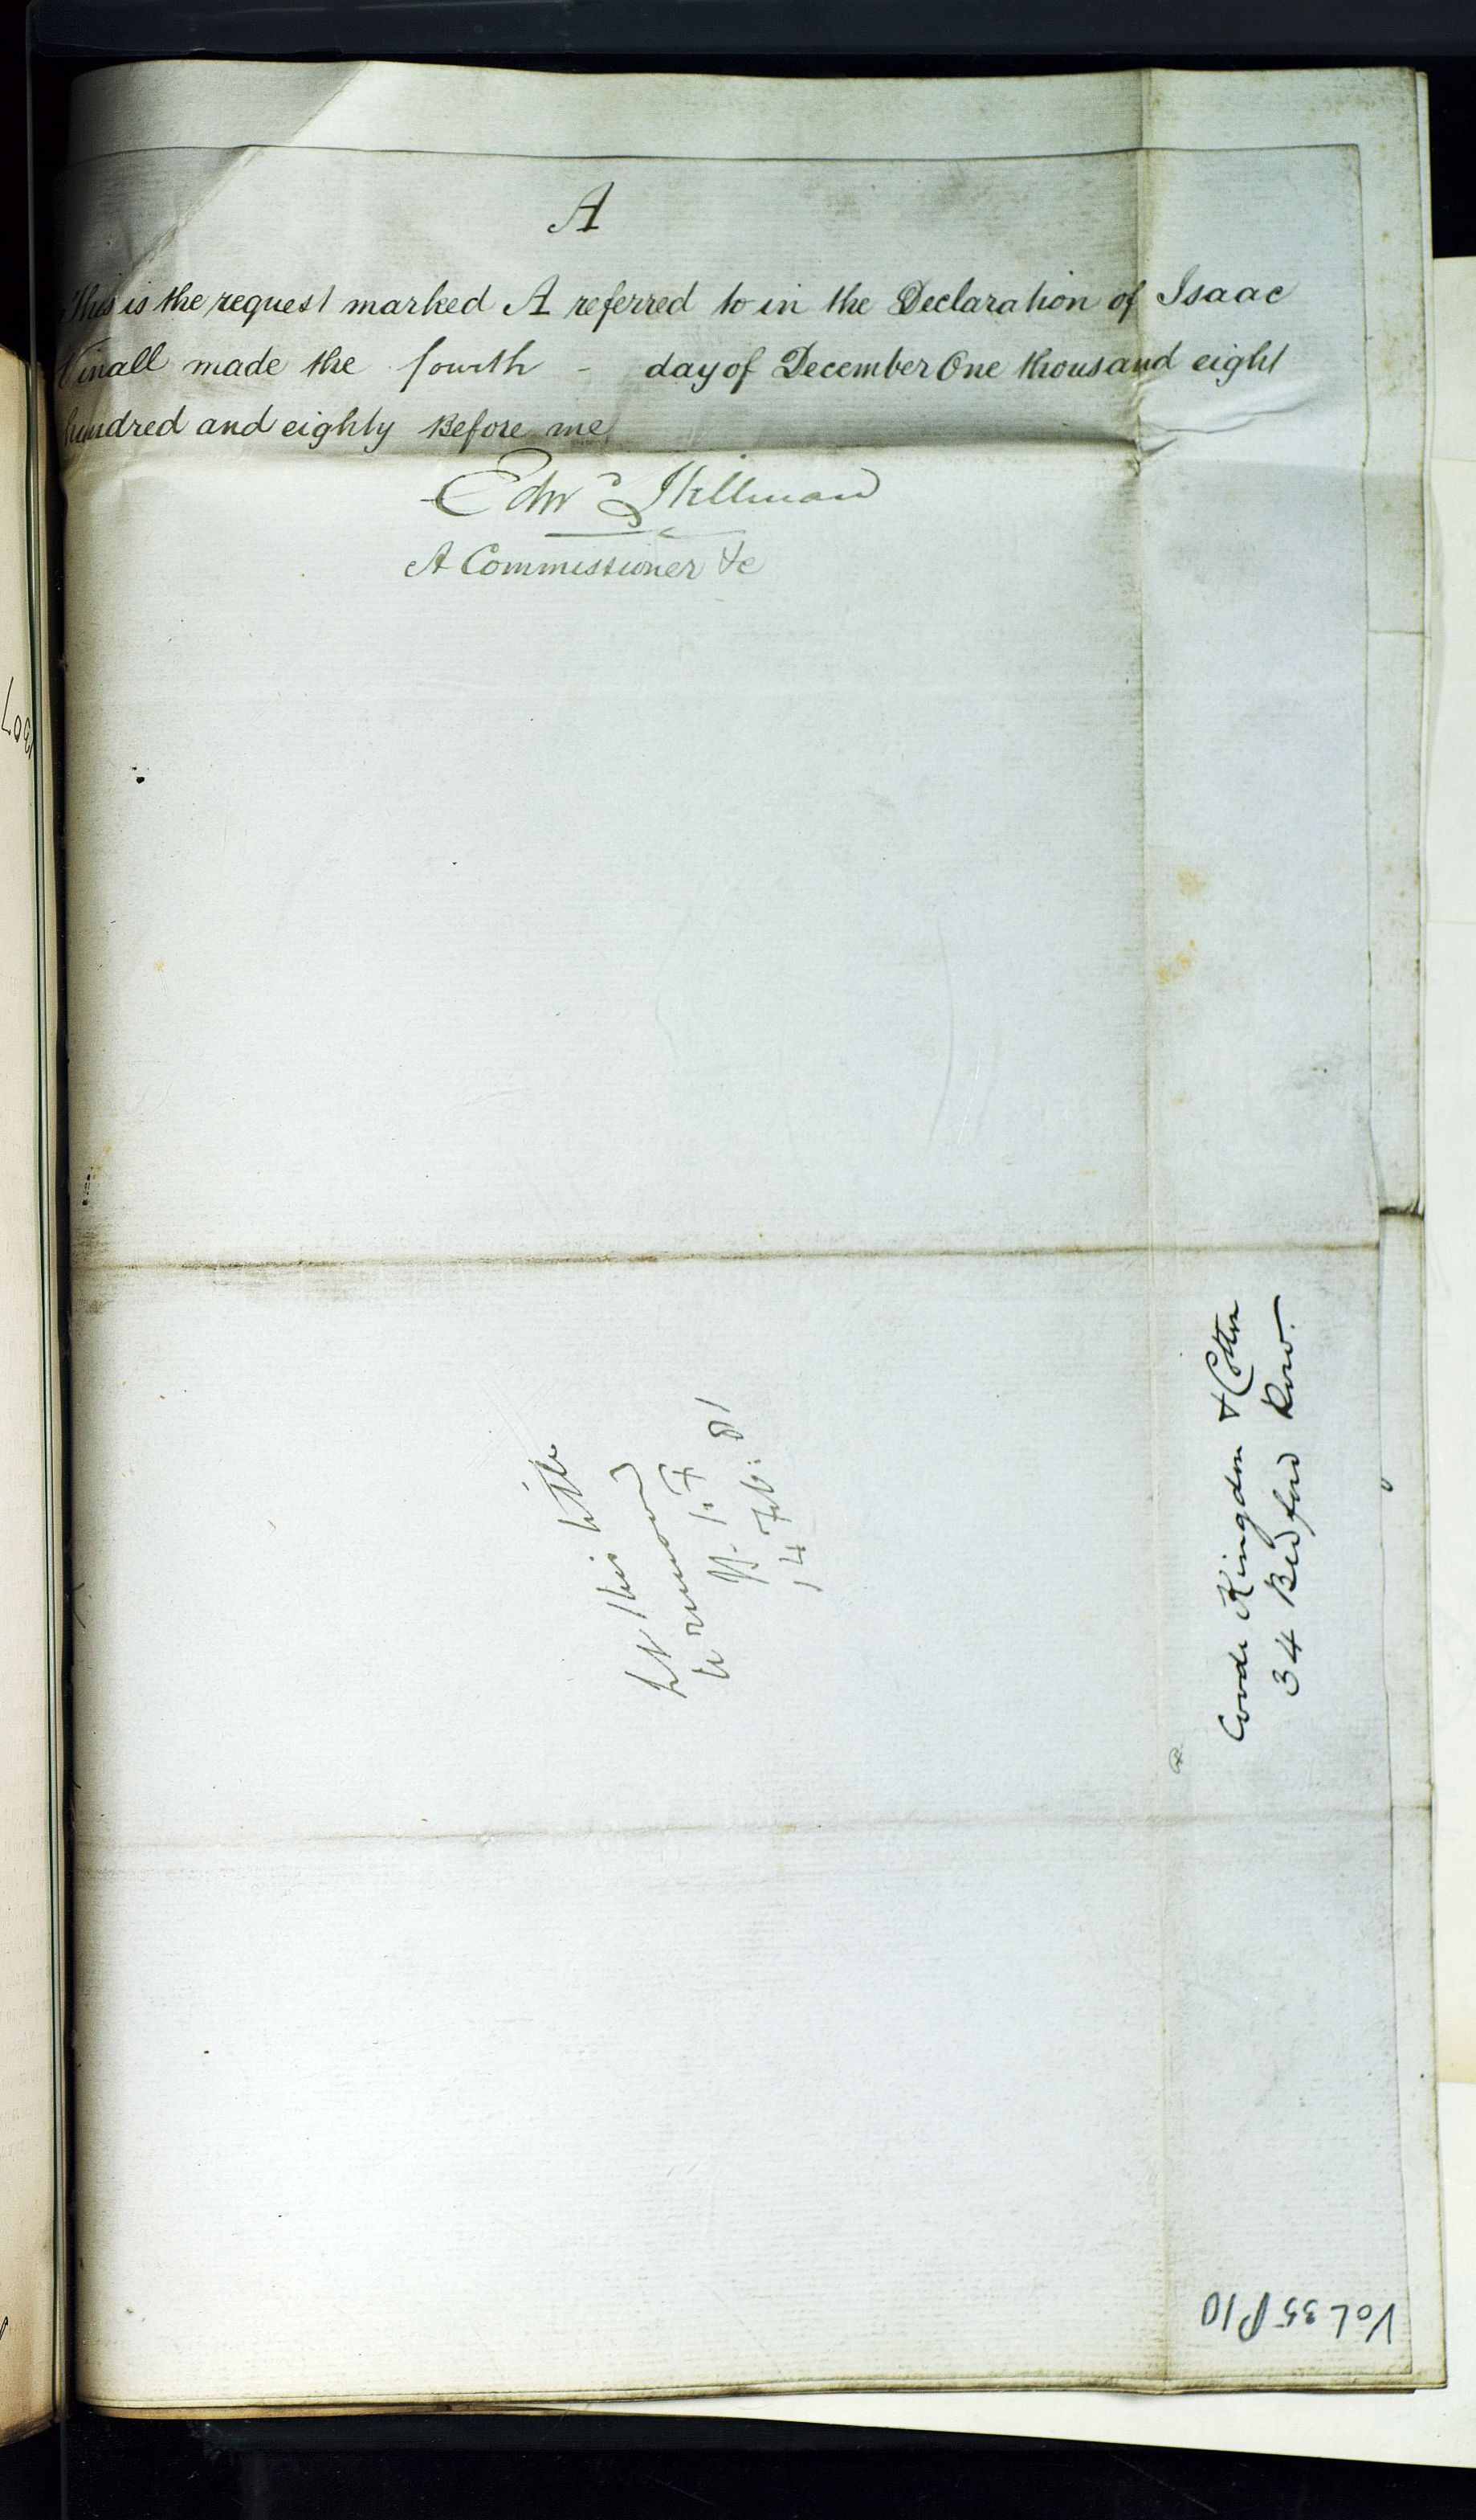 A
This is the request marked A referred to in the Declaration of Isaac
Vinall made the fourth - day of December One thousand eight
hundred and eighty Before me
Edwd Hillman
A Commissioner &c
Let this title
be removed
14 Feb: 81
Coode Kingdon & Cotton
34 Bedford Row.
VOL 35 P10